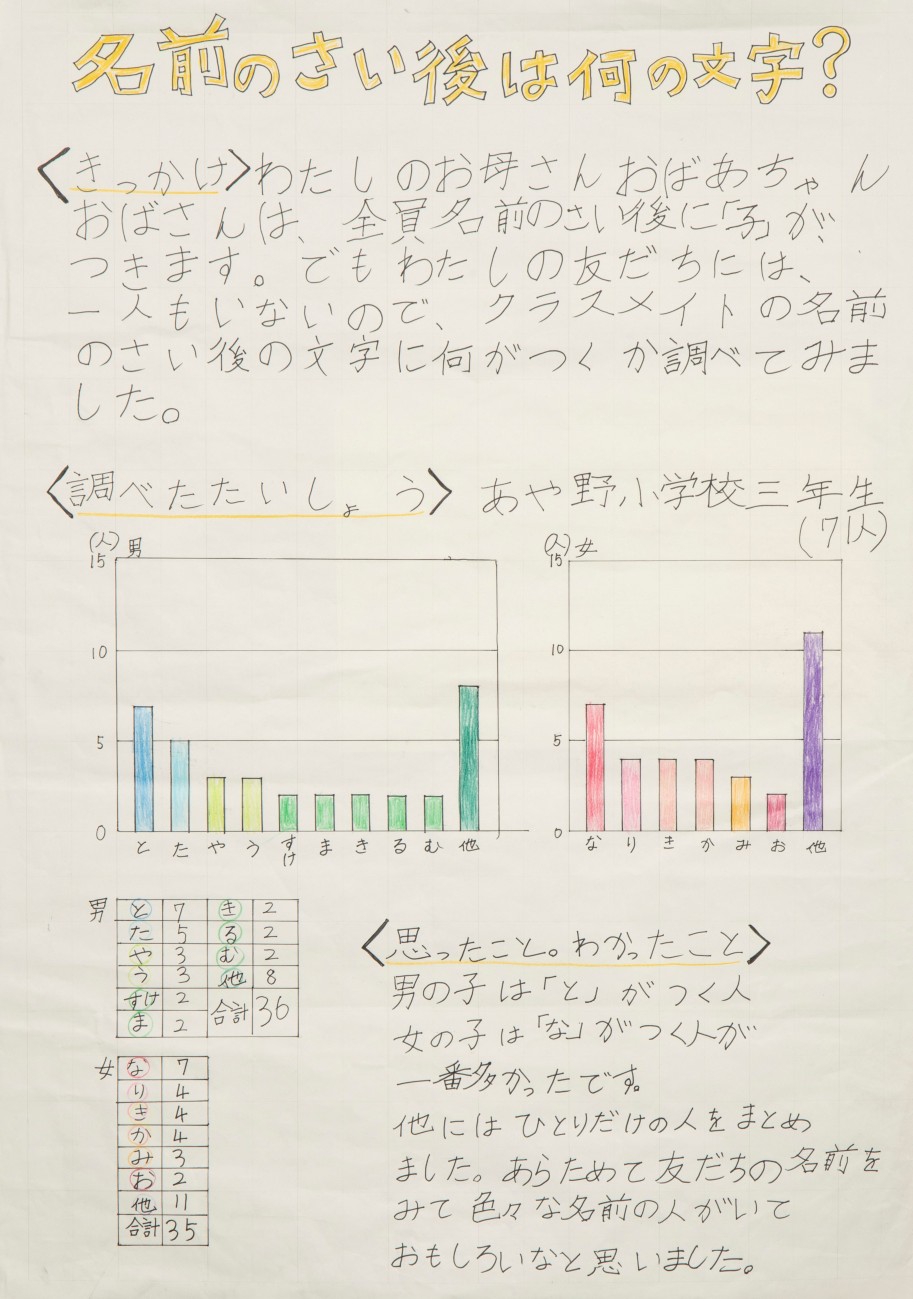 名前のさい後は何の文字?
〈きっかけ〉わたしのお母さんおばあちゃん
おばさんは、全員名前のさい後に「子」が、
つきます。でもわたしの友だちには、
一人もいないので、クラスメイトの名前
のさい後の文字に何がつくか調べてみま
した。
〈調べたたいしょう〉 あや野小学校三年生
(71人)
(人) 男
15
10
5
0
と た や う すけ ま き る む 他
(人) 女
15
10
5
0
な り き か み お 他
男 と 7 き 2
た 5 る 2
や 3 む 2
う 3 他 8
すけ 2 合計 36
ま 2
女 な 7
り 4
き 4
か 4
み 3
お 2
他 11
合計 35
〈思ったこと。わかったこと〉
男の子は「と」がつく人
女の子は「な」がつく人が
一番多かったです。
他にはひとりだけの人をまとめ
ました。あらためて友だちの名前を
みて色々な名前の人がいて
おもしろいなと思いました。